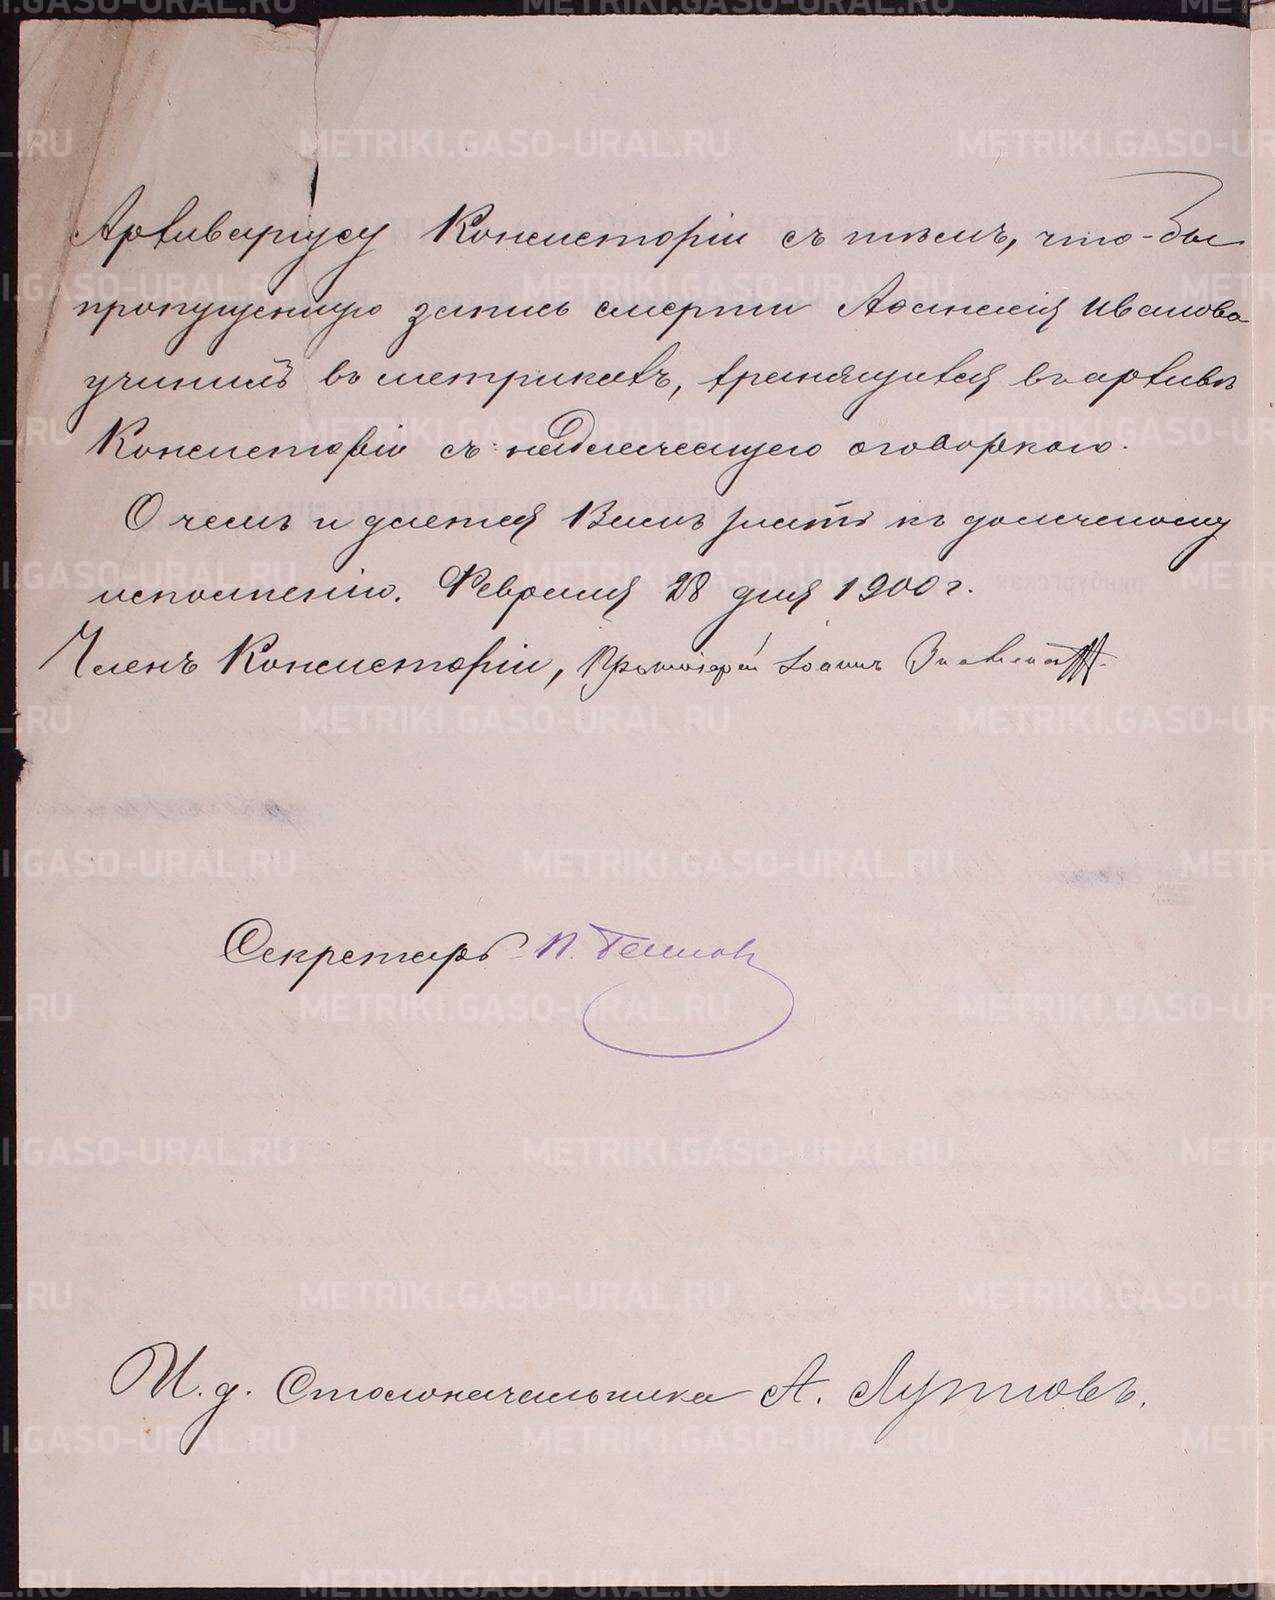 Архиваріусу Консисторіи съ тѣмъ, что-бы
пропущенную запись смерти Аѳанасія Иванова
учинилъ въ метрикахъ, хранящихся въ архивѣ
Консисторіи съ надлежащею оговоркою.
О чемъ и дается Вамъ знать къ должному
исполненію. Февраля 28 дня 1900 г.
Членъ Консисторіи, Протоіерей Іоаннъ
Секретарь П.
И. д. Столоначальника А. Лутковъ.
METRIKI.GASO-URAL.RU